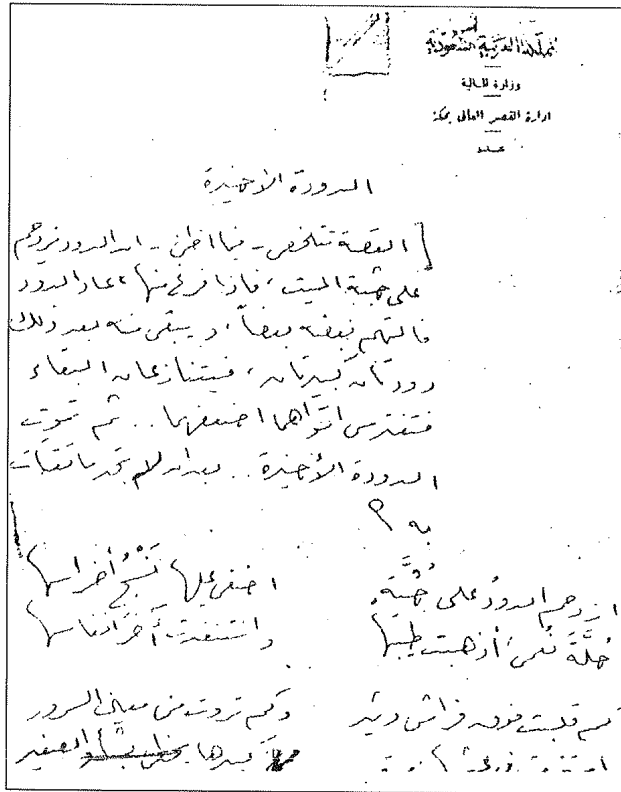 المملكة العربية السعودية
وزارة المالية
ادارة القصر العالى بمكة
عدد
الدودة الأخيرة
القصة تتلخص - فيما اظن - ان الدود يزدحم
على جثة الميت ، فاذا فرغ منها ، عاد الدود
فالتهم بعضه بعضاً ، ويبقى منه بعد ذلك
دودتان كبيرتان ، فيتنازعان البقاء
فتفترس اقواهما اضعفهما .. ثم تموت
الدودة الأخيرة .. بعد ان لم تجد ما تقتات
به ؟
ازدحم الدودُ على جُثَّةٍ اضفى عليها نَسْجُ أضراسها
حُلَّةَ نُعمى أذهبت طيبها واستنفدت أخر أنفاسها
كم قلبت فوق فراش وثير وكم تروت من معاني السرور
كبيرها الصغير